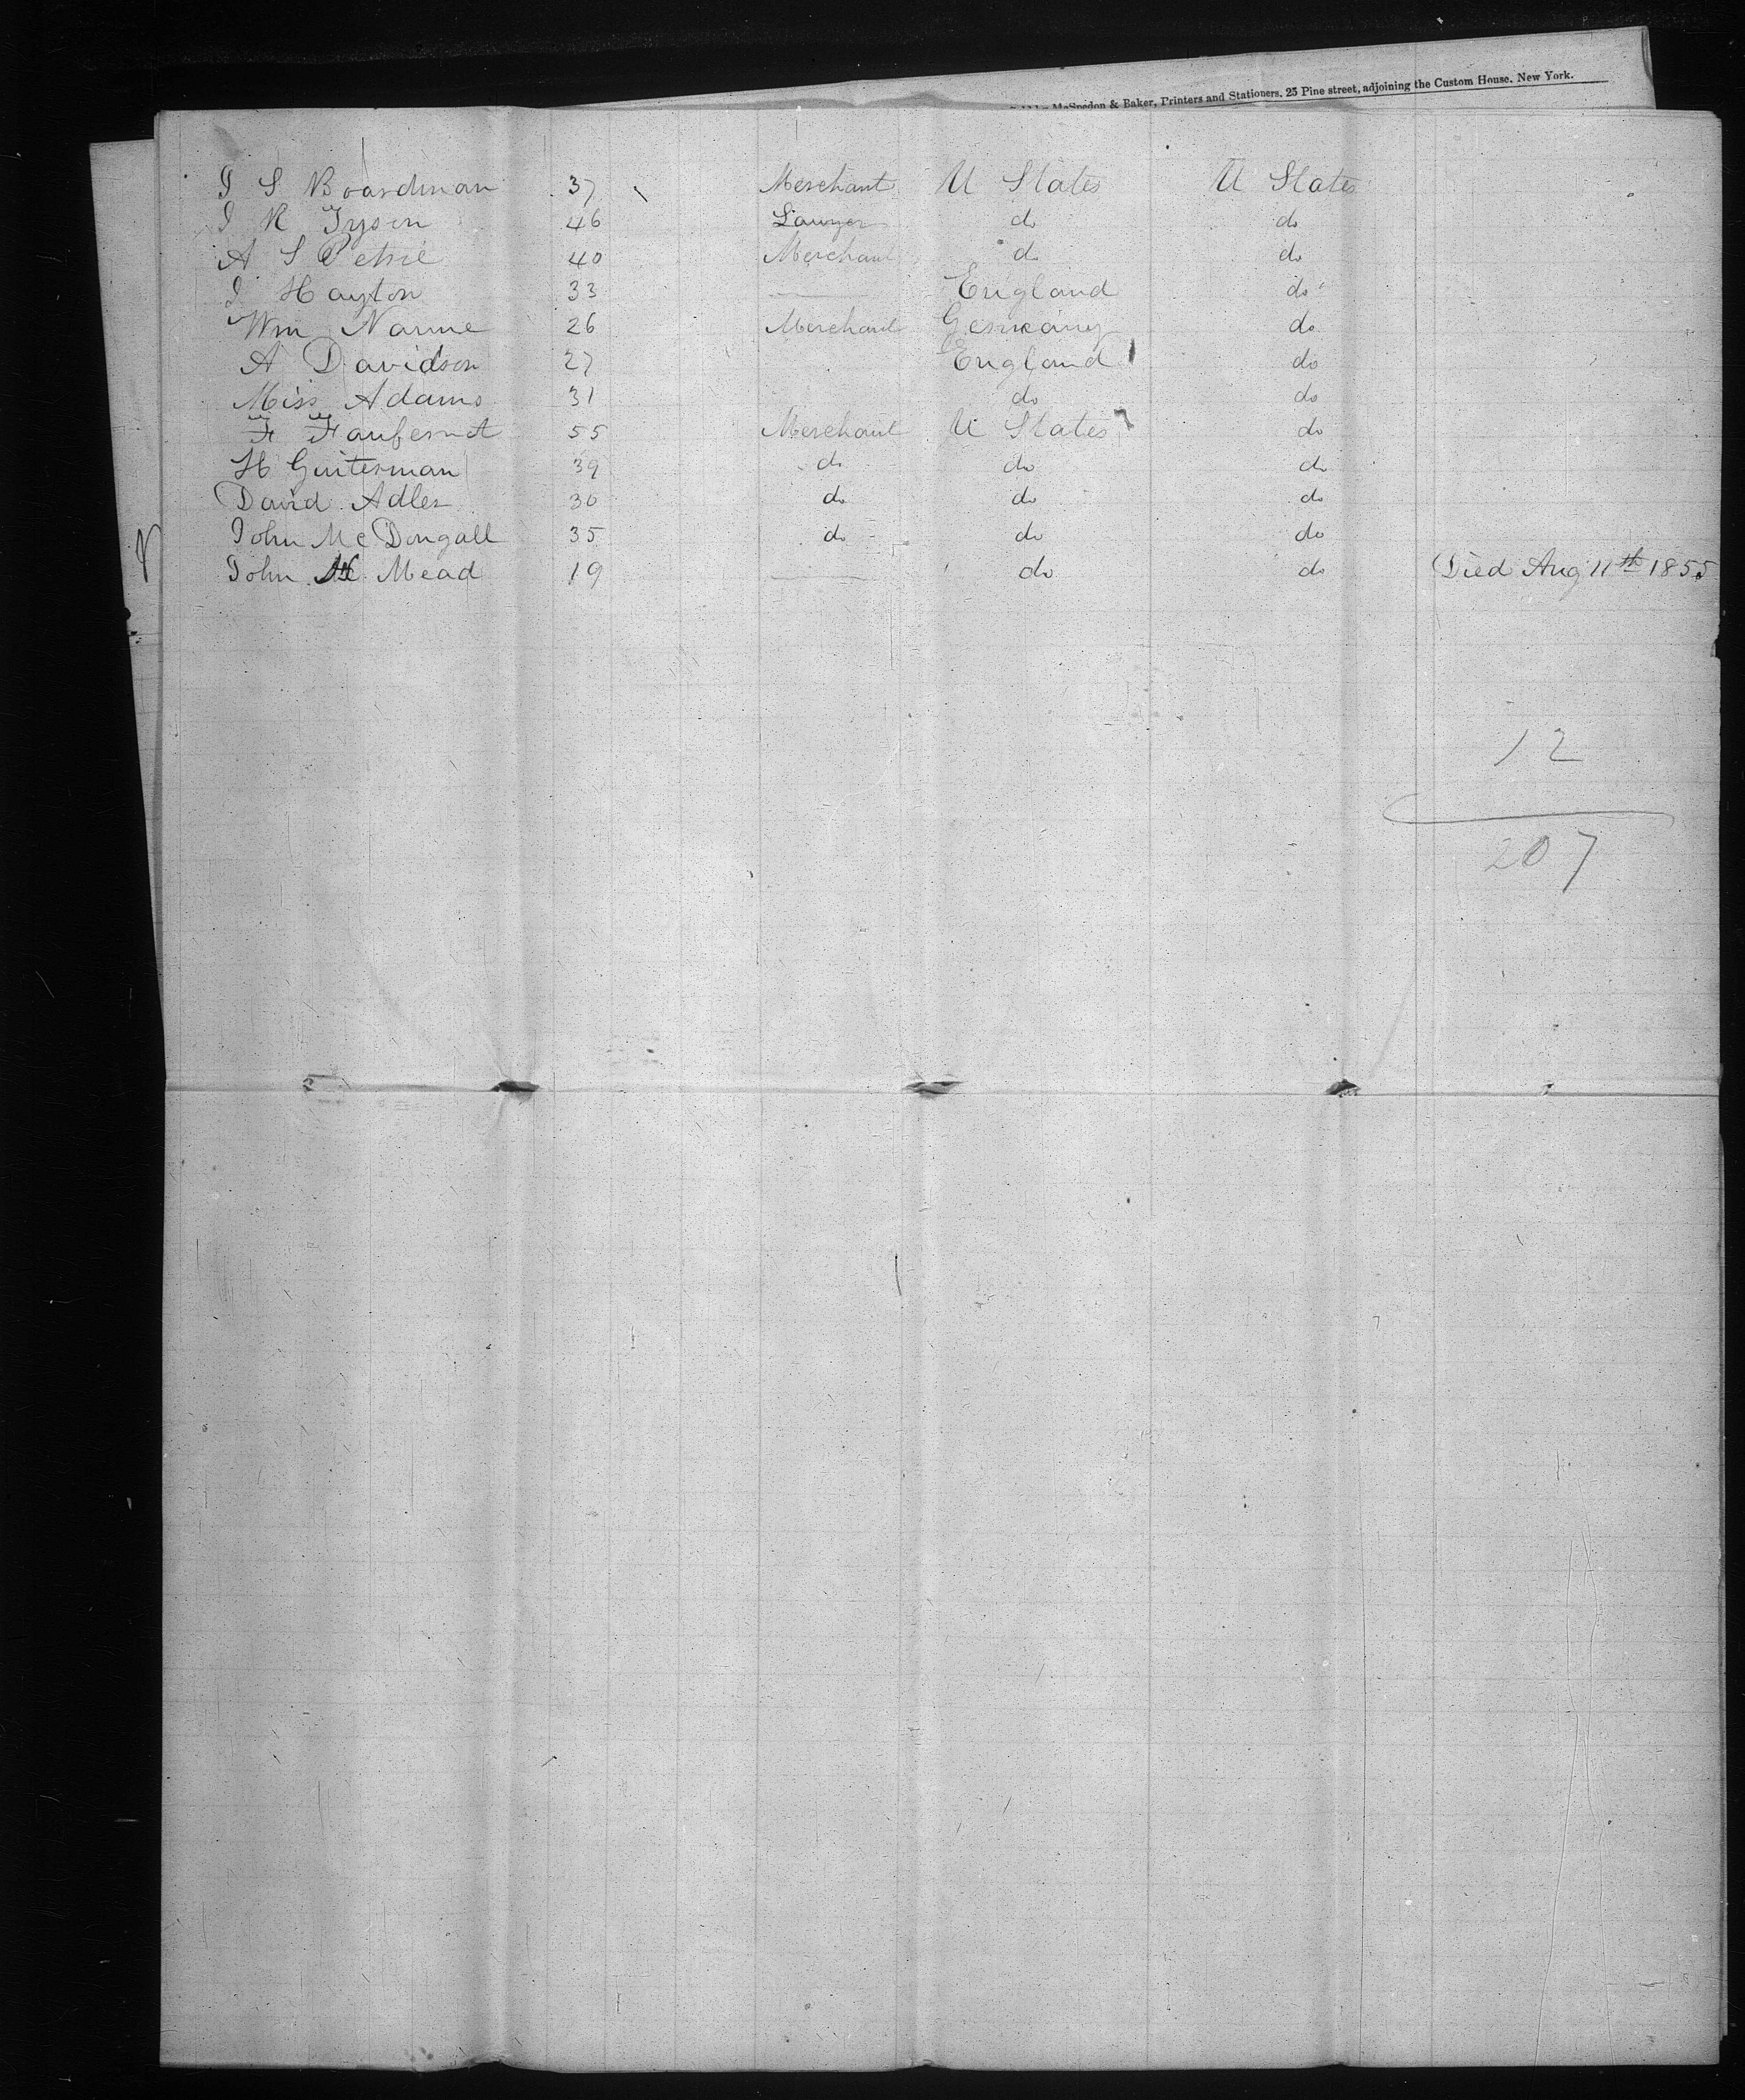 McSpedon & Baker, Printers and Stationers, 25 Pine street, adjoining the Custom House, New York.
J S Boardman 37 Merchant U States U States
J R Tyson 46 Lawyer do do
A S Petrie 40 Merchant do do
J Hayton 33 — England do
Wm Nanne 26 Merchant Germany do
A Davidson 27 England do
Miss Adams 31 do do
F 55 Merchant U States do
H Guiterman 39 do do do
David Adler 30 do do do
John McDougall 35 do do do
John Mead 19 — do do Died Aug 11th 1855
12
207